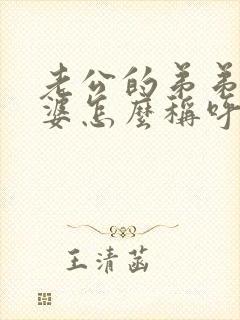 老公的弟弟
婆怎麼稱呼
王清菡